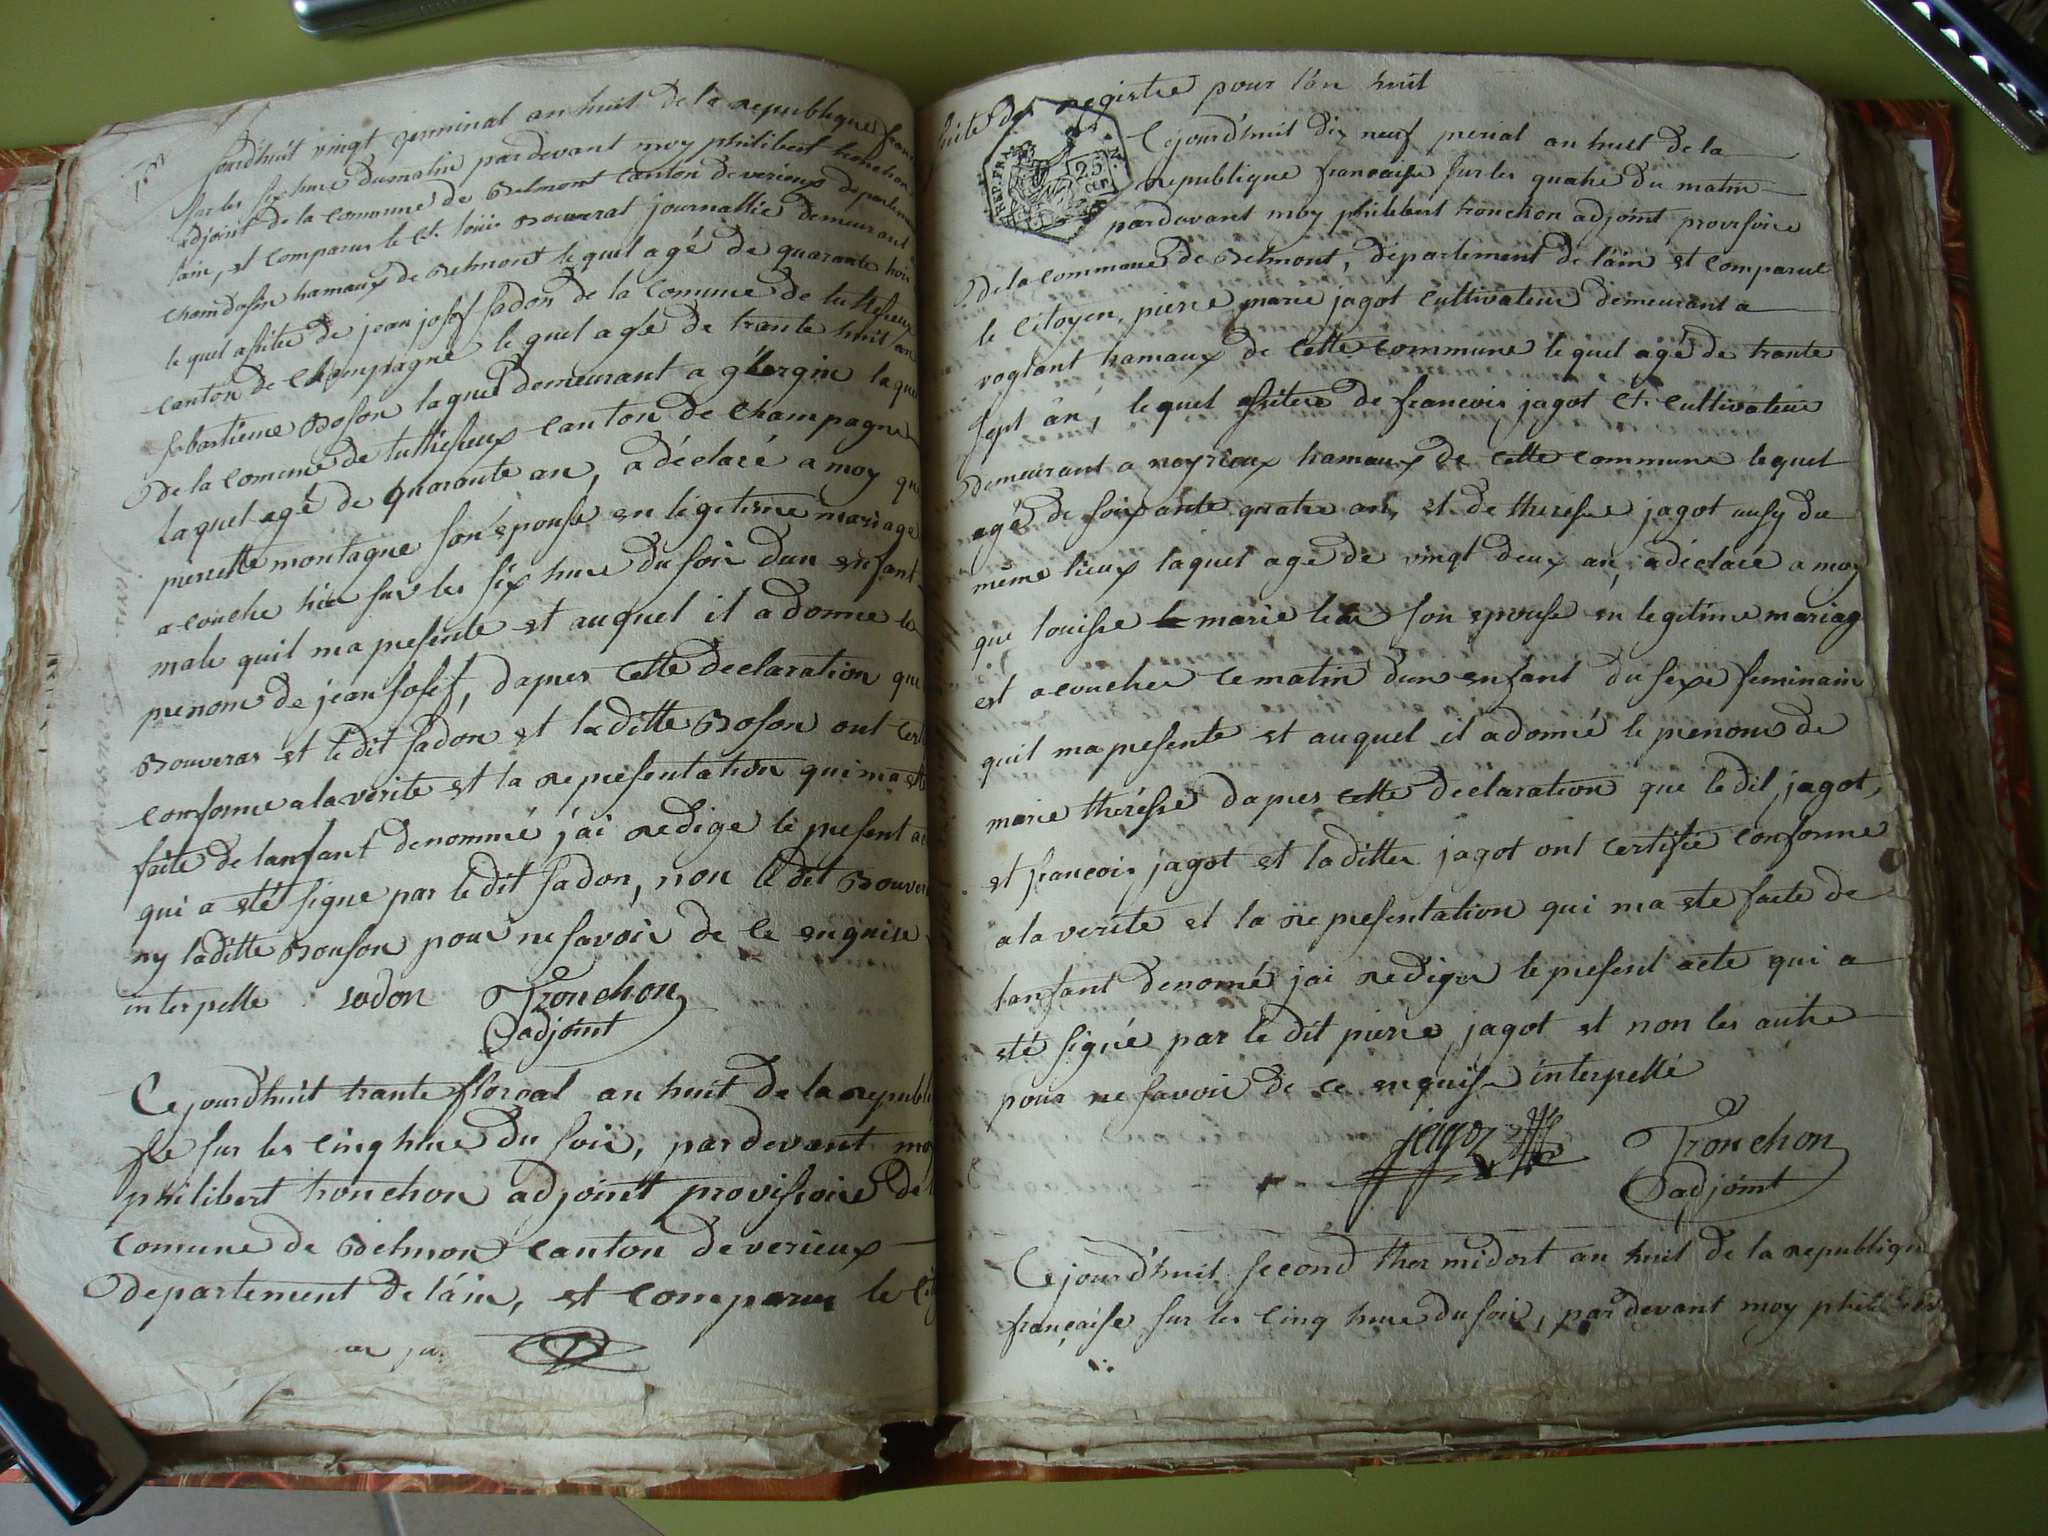 jourdhuit vingt germinal an huit de la republique
sur les six hure du matin pardevant moy philibert tronchon
adjoint de la comune de Belmont canton de verieux departem
lain, et comparus le Ct. loüis Bouverat journallié demeurant
chamdosin hamaux de Belmont lequel agé de quarante
lequel assitée de jean josef sadon de la comune de
canton de Champagne lequel agé de trante huit an
sebastienne Boson laquel demeurant a laque
de la comune de canton de champagne
laquel agé de quarante an, a déclaré a moy que
pierrette montagne son épouse, en legetisme mariage
acouche hier sur les six hure du soir dun enfant
male quil ma presente et auquel il a donne le
prenom de jean josef, dapres cette declaration que
Bouveras et le dit sadon et la ditte Boson ont
conforme a la verite et la representation qui ma
faite de lanfant denommé, jai redige le present
qui a eté signe par le dit sadon, non le dit Bouver
ny la ditte Bonson pour ne savoir de ce enquise
interpelle sadon Tronchon
adjoint
Cejourdhuit trante floreal an huit de la republi
se sur les cinq hure du soir, pardevant moy
philibert tronchon adjointt provissoire de l
comune de Belmon canton de verieux
departement de lain, et comparus le
Suite du registre pour lan huit
REP. FRA.
25
Cejourdhuit dix neuf perial an huit de la
republique francaise sur les quatre du matin
pardevant moy philibert tronchon adjoint provisoire
de la commune de Belmont, departement de lain et comparut
le citoyen pierre marie jagot cultivateur demeurant a
voglant hamaux de cette commune lequel agé de trante
sept an, lequel assitere de francois jagot Ct. cultivateur
demeurant a hamaux de cette commune lequel
agé de soixante quatre ans, et de theresse jagot ausy du
même lieux laquel age de vingt deux an, a déclaré a moy
que louisse marie son epouse en legetime mariag
est acoucher ce matin dun enfant du sexe feminain
quil ma presente et auquel il a donné le prenom de
marie théresse dapres cette declaration que le dit jagot,
et francois jagot et la ditte jagot ont certifie conforme
a la verite et la representation qui ma ete faite de
lanfant denomé jai rediger le present acte qui a
eté signé par le dit pierre jagot et non les autre
pour ne savoir de ce enquise interpellé
jagot Tronchon
adjoint
Cejourdhuit second thermidort an huit de la republique
françaisse sur les cinq hure du soir, pardevant moy